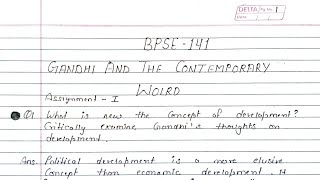 DELTA Pg No. 1
Date / /
BPSE - 141
GANDHI AND THE CONTEMPORARY
WOLRD
Assignment - I
Q1. What is new the concept of development?
Critically examine Gandhi's thoughts on
development.
Ans. Political development is a more elusive
Concept than economic development. H